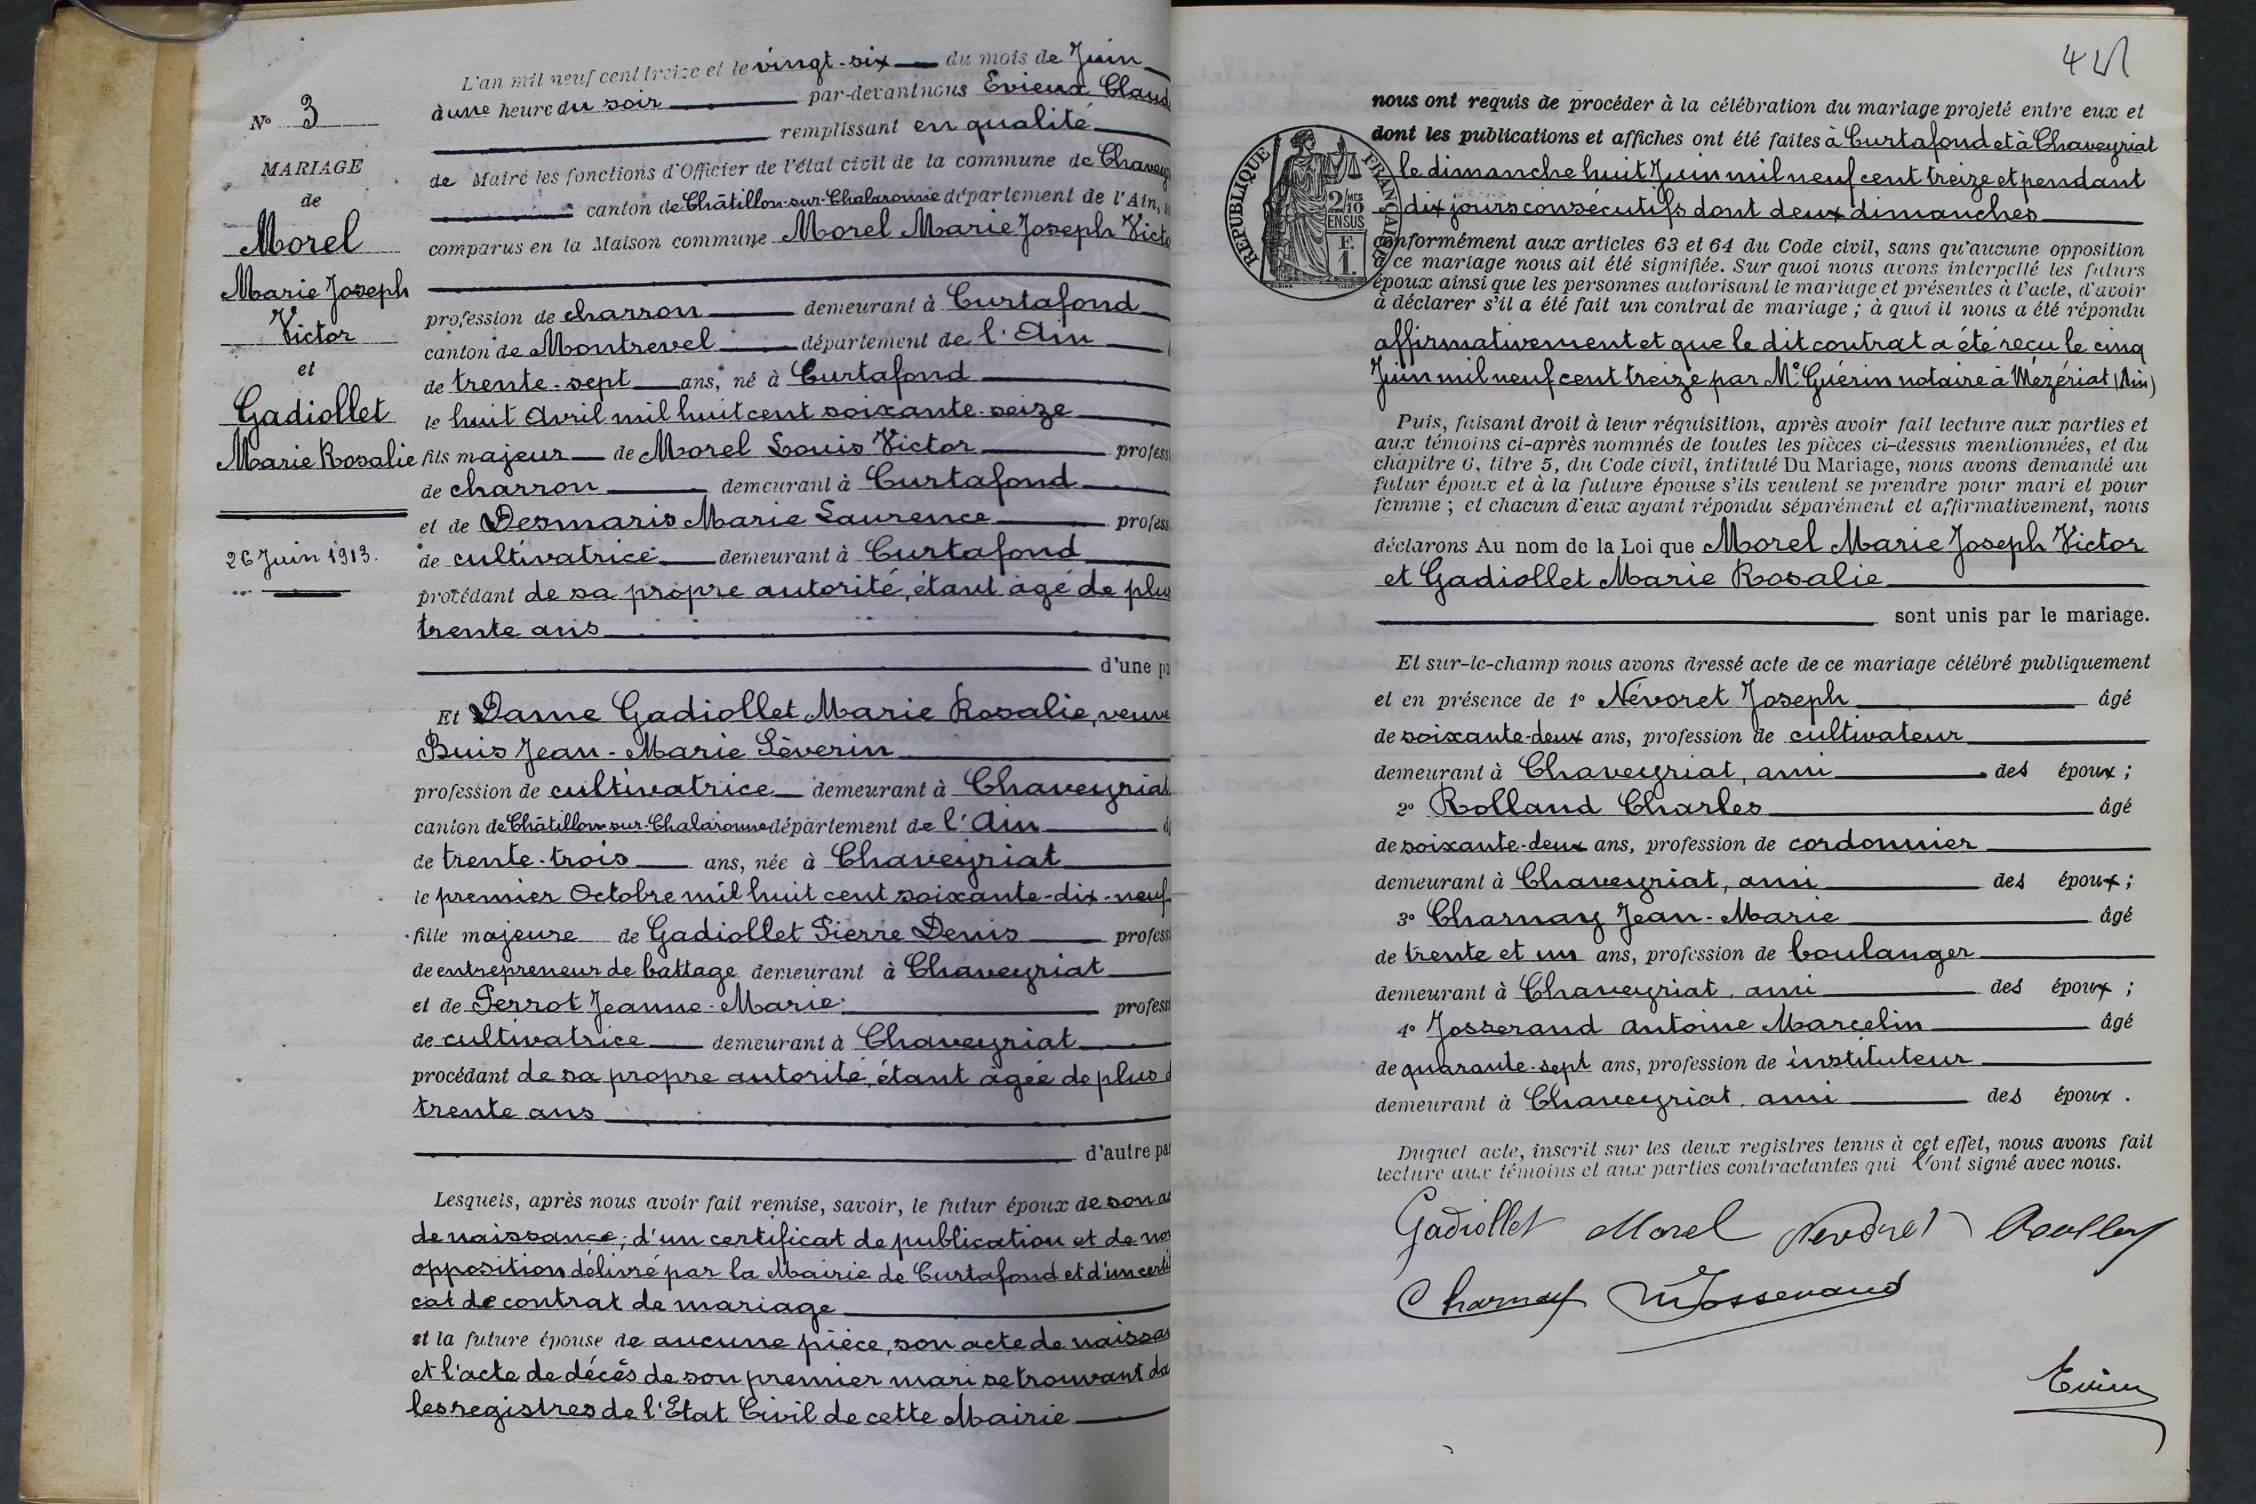 N° 3
MARIAGE
de
Morel
Marie Joseph
Victor
et
Gadiollet
Marie Rosalie
26 Juin 1913.
L'an mil neuf cent treize et le vingt-six du mois de Juin
à une heure du soir par-devant nous Evieux Claud
remplissant en qualité
de Maire les fonctions d'Officier de l'état civil de la commune de Chavey
canton de Châtillon-sur-Chalaronne département de l'Ain, s
comparus en la Maison commune Morel Marie Joseph Victo
profession de charron demeurant à Curtafond
canton de Montrevel département de l'Ain
de trente-sept ans, né à Curtafond
le huit Avril mil huit cent soixante-seize
fils majeur de Morel Louis Victor profess
de charron demeurant à Curtafond
et de Desmaris Marie Laurence profess
de cultivatrice demeurant à Curtafond
procédant de sa propre autorité, étant âgé de plus
trente ans
d'une pa
Et Dame Gadiollet Marie Rosalie, veuve
Buis Jean-Marie Séverin
profession de cultivatrice demeurant à Chaveyriat
canton de Châtillon-sur-Chalaronne département de l'Ain
de trente-trois ans, née à Chaveyriat
le premier Octobre mil huit cent soixante-dix-neuf
fille majeure de Gadiollet Pierre Denis profess
de entrepreneur de battage demeurant à Chaveyriat
et de Perrot Jeanne-Marie profess
de cultivatrice demeurant à Chaveyriat
procédant de sa propre autorité, étant âgée de plus d
trente ans
d'autre par
Lesquels, après nous avoir fait remise, savoir, le futur époux de son ac
de naissance, d'un certificat de publication et de non
opposition délivré par la Mairie de Curtafond et d'un certifi
cat de contrat de mariage
et la future épouse de aucune pièce, son acte de naissan
et l'acte de décès de son premier mari se trouvant da
les registres de l'Etat Civil de cette Mairie
RÉPUBLIQUE FRANÇAISE
2/10
EN SUS
F.
1.
nous ont requis de procéder à la célébration du mariage projeté entre eux et
dont les publications et affiches ont été faites à Curtafond et à Chaveyriat
le dimanche huit Juin mil neuf cent treize et pendant
dix jours consécutifs dont deux dimanches
conformément aux articles 63 et 64 du Code civil, sans qu'aucune opposition
à ce mariage nous ait été signifiée. Sur quoi nous avons interpellé les futurs
époux ainsi que les personnes autorisant le mariage et présentes à l'acte, d'avoir
à déclarer s'il a été fait un contrat de mariage ; à quoi il nous a été répondu
affirmativement et que le dit contrat a été reçu le cinq
Juin mil neuf cent treize par Me Guérin notaire à Mézériat (Ain)
Puis, faisant droit à leur réquisition, après avoir fait lecture aux parties et
aux témoins ci-après nommés de toutes les pièces ci-dessus mentionnées, et du
chapitre 6, titre 5, du Code civil, intitulé Du Mariage, nous avons demandé au
futur époux et à la future épouse s'ils veulent se prendre pour mari et pour
femme ; et chacun d'eux ayant répondu séparément et affirmativement, nous
déclarons Au nom de la Loi que Morel Marie Joseph Victor
et Gadiollet Marie Rosalie
sont unis par le mariage.
Et sur-le-champ nous avons dressé acte de ce mariage célébré publiquement
et en présence de 1° Névoret Joseph âgé
de soixante-deux ans, profession de cultivateur
demeurant à Chaveyriat, ami des époux ;
2° Rolland Charles âgé
de soixante-deux ans, profession de cordonnier
demeurant à Chaveyriat, ami des époux ;
3° Charnay Jean-Marie âgé
de trente et un ans, profession de boulanger
demeurant à Chaveyriat, ami des époux ;
4° Josserand Antoine Marcelin âgé
de quarante-sept ans, profession de instituteur
demeurant à Chaveyriat, ami des époux .
Duquel acte, inscrit sur les deux registres tenus à cet effet, nous avons fait
lecture aux témoins et aux parties contractantes qui l'ont signé avec nous.
Gadiollet Morel Nevoret
Charnay Josserand
Evieux